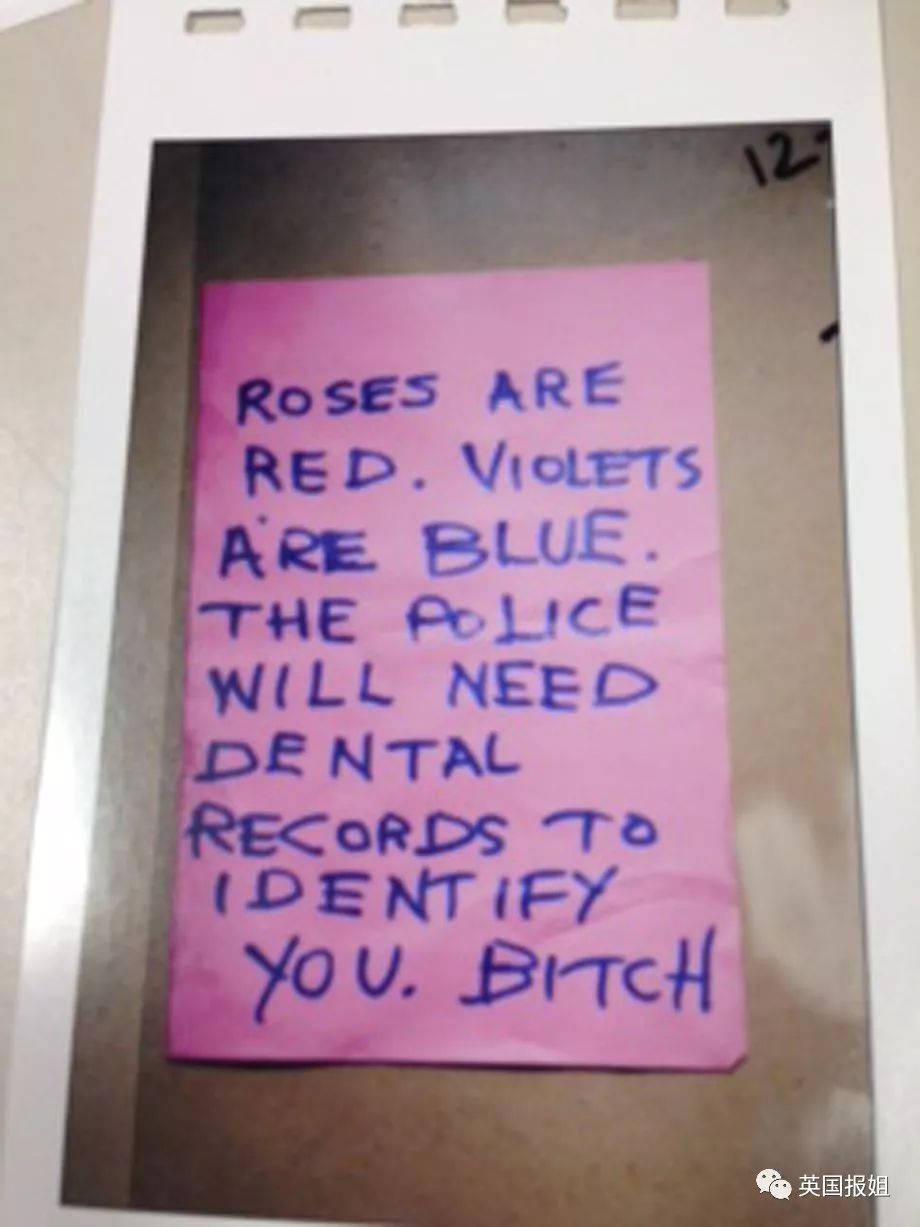 12
ROSES ARE
RED. VIOLETS
ARE BLUE.
THE POLICE
WILL NEED
DENTAL
RECORDS TO
IDENTIFY
YOU. BITCH
英国报姐